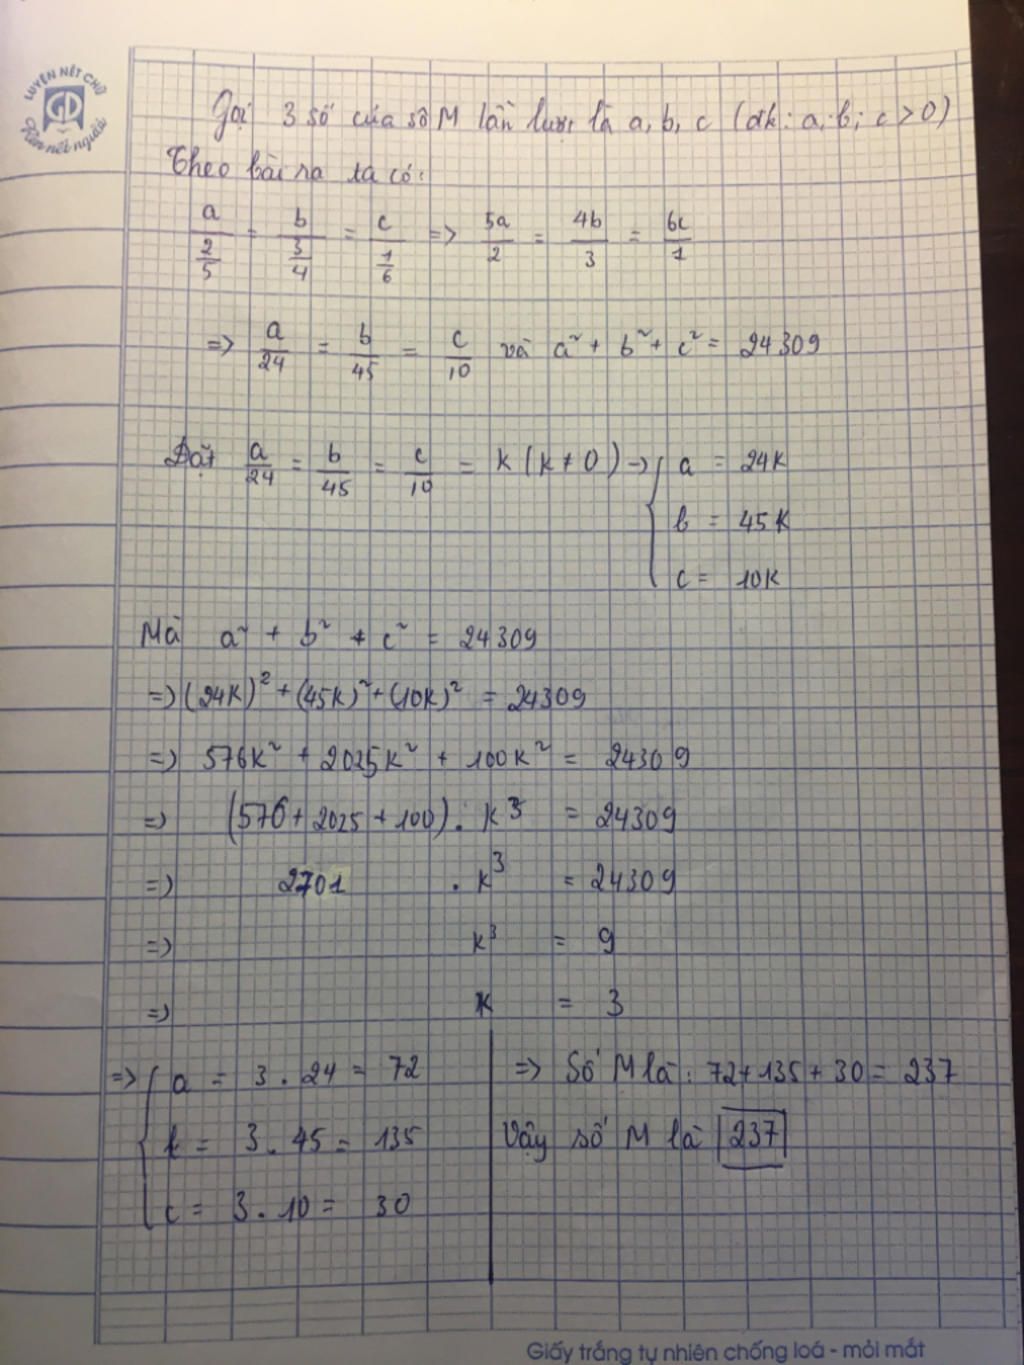 LUYỆN NÉT CHỮ
GD
Rèn nết người
Gọi 3 số của số M lần lượt là a, b, c (đk: a; b; c > 0)
Theo bài ra ta có:
a/(2/5) = b/(3/4) = c/(1/6) => 5a/2 = 4b/3 = 6c/1
=> a/24 = b/45 = c/10 và a² + b² + c² = 24309
Đặt a/24 = b/45 = c/10 = k (k ≠ 0) → { a = 24k
b = 45k
c = 10k
Mà a² + b² + c² = 24309
=> (24k)² + (45k)² + (10k)² = 24309
=> 576k² + 2025k² + 100k² = 24309
=> (576 + 2025 + 100) . k³ = 24309
=> 2701 . k³ = 24309
=> k³ = 9
=> k = 3
=> { a = 3 . 24 = 72
b = 3 . 45 = 135
c = 3 . 10 = 30
=> Số M là: 72 + 135 + 30 = 237
Vậy số M là 237
Giấy trắng tự nhiên chống loá - mỏi mắt